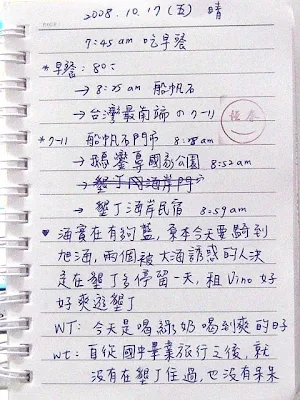 2008.10.17 (五) 晴
7:45 am 吃早餐
*早餐: 80元
→ 8:25 am 船帆石
→ 台灣最南端の7-11
*7-11 船帆石門市 8:28am
→ 鵝鑾鼻國家公園 8:52am
→ 墾丁海岸民宿 8:59am
♥ 海實在有夠藍,原本今天要騎到
旭海,兩個被大海誘惑的人決
定在墾丁多停留一天,租Vino好
好爽遊墾丁
WT: 今天是喝綠奶喝到爽的日子
wt: 自從國中畢業旅行之後,就
沒有在墾丁住過,也沒有呆呆